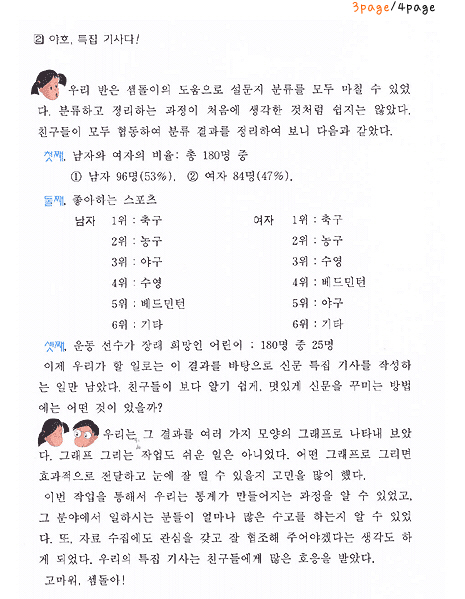 3page/4page
2 야호, 특집 기사다!
우리 반은 셈돌이의 도움으로 설문지 분류를 모두 마칠 수 있었
다. 분류하고 정리하는 과정이 처음에 생각한 것처럼 쉽지는 않았다.
친구들이 모두 협동하여 분류 결과를 정리하여 보니 다음과 같았다.
첫째, 남자와 여자의 비율: 총 180명 중
① 남자 96명(53%), ② 여자 84명(47%).
둘째, 좋아하는 스포츠
남자 1위 : 축구 여자 1위 : 축구
2위 : 농구 2위 : 농구
3위 : 야구 3위 : 수영
4위 : 수영 4위 : 베드민턴
5위 : 베드민턴 5위 : 야구
6위 : 기타 6위 : 기타
셋째, 운동 선수가 장래 희망인 어린이 : 180명 중 25명
이제 우리가 할 일로는 이 결과를 바탕으로 신문 특집 기사를 작성하
는 일만 남았다. 친구들이 보다 알기 쉽게, 멋있게 신문을 꾸미는 방법
에는 어떤 것이 있을까?
우리는 그 결과를 여러 가지 모양의 그래프로 나타내 보았
다. 그래프 그리는 작업도 쉬운 일은 아니었다. 어떤 그래프로 그리면
효과적으로 전달하고 눈에 잘 띌 수 있을지 고민을 많이 했다.
이번 작업을 통해서 우리는 통계가 만들어지는 과정을 알 수 있었고,
그 분야에서 일하시는 분들이 얼마나 많은 수고를 하는지 알 수 있었
다. 또, 자료 수집에도 관심을 갖고 잘 협조해 주어야겠다는 생각도 하
게 되었다. 우리의 특집 기사는 친구들에게 많은 호응을 받았다.
고마워, 셈돌아!